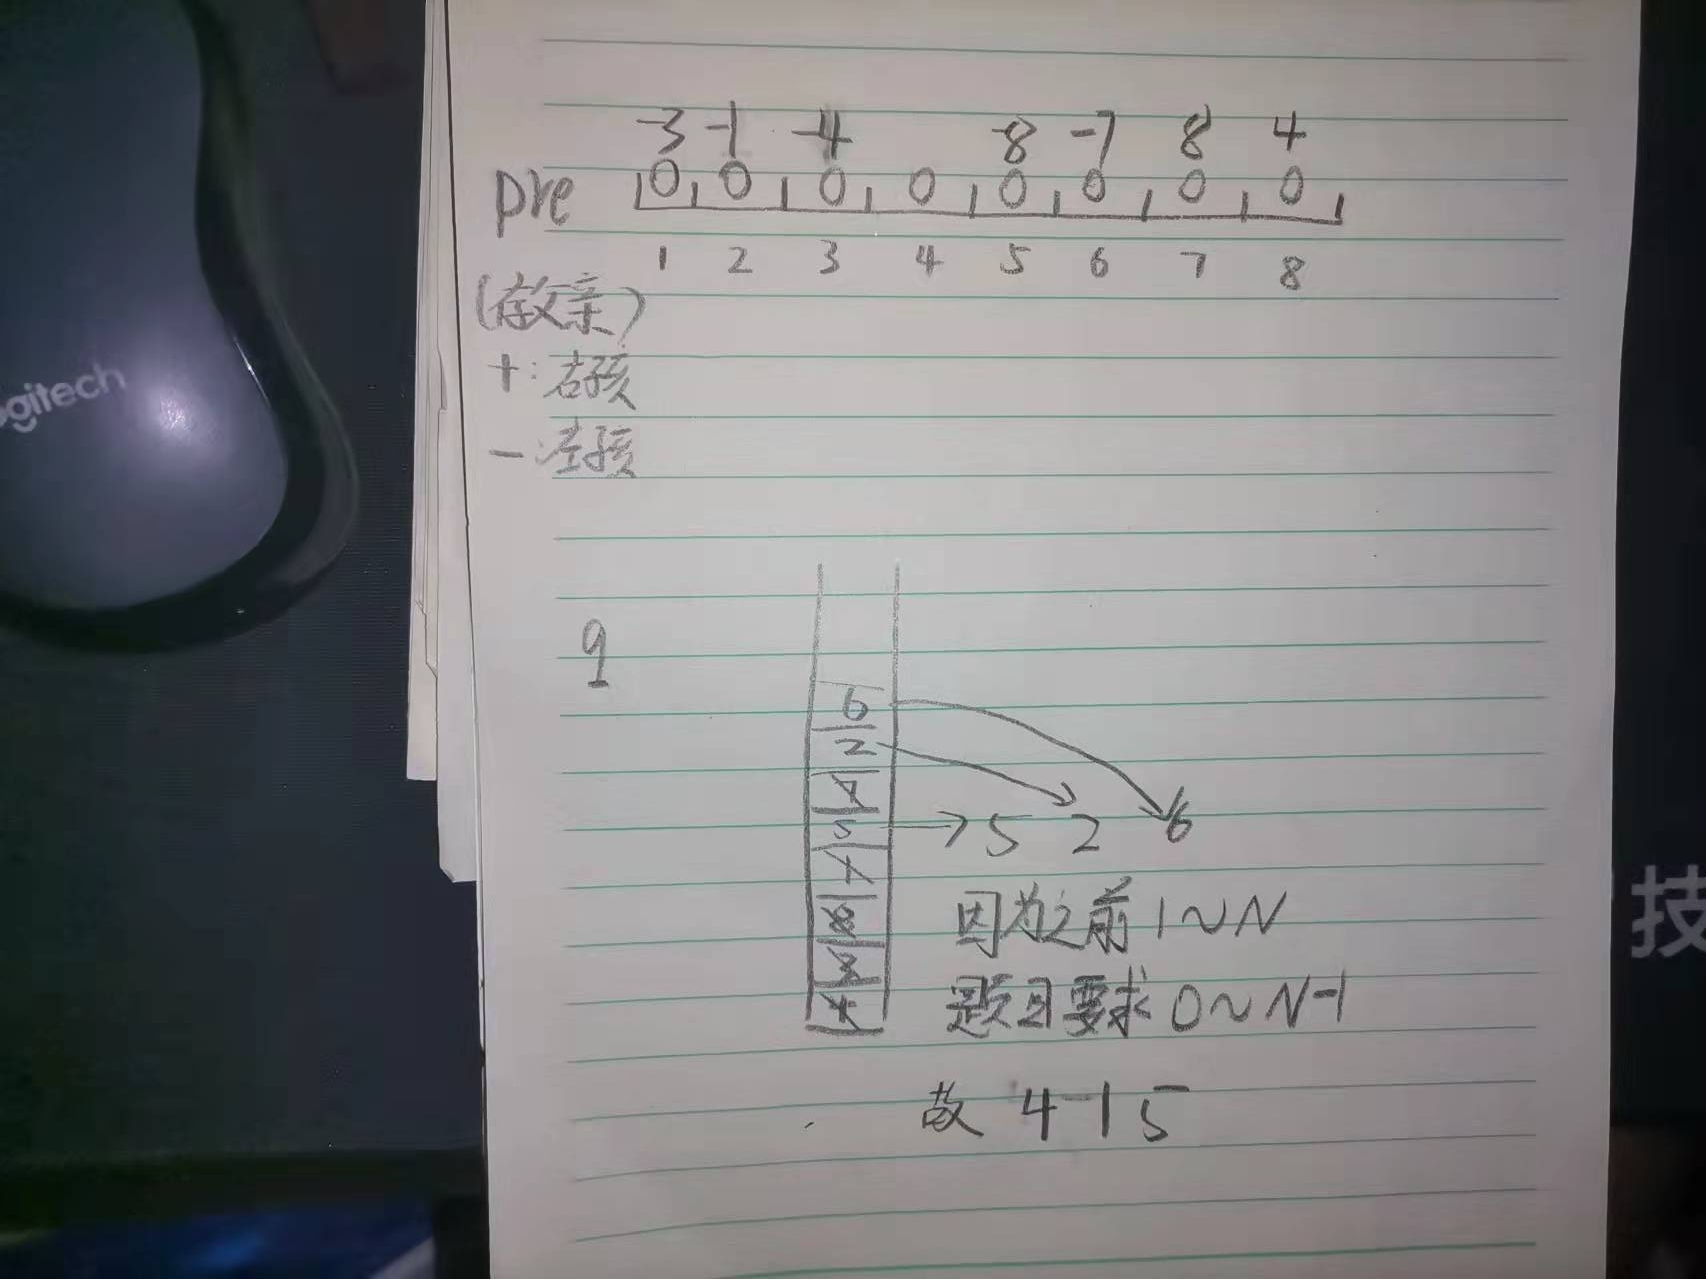 -3 -1 -4 -8 -7 8 4
pre 0 0 0 0 0 0 0 0
1 2 3 4 5 6 7 8
(存父亲)
+:右孩
-:左孩
ogitech
q
6
2
5
5 2 6
因为之前 1~N
题目要求 0~N-1
故 4 1 5
技